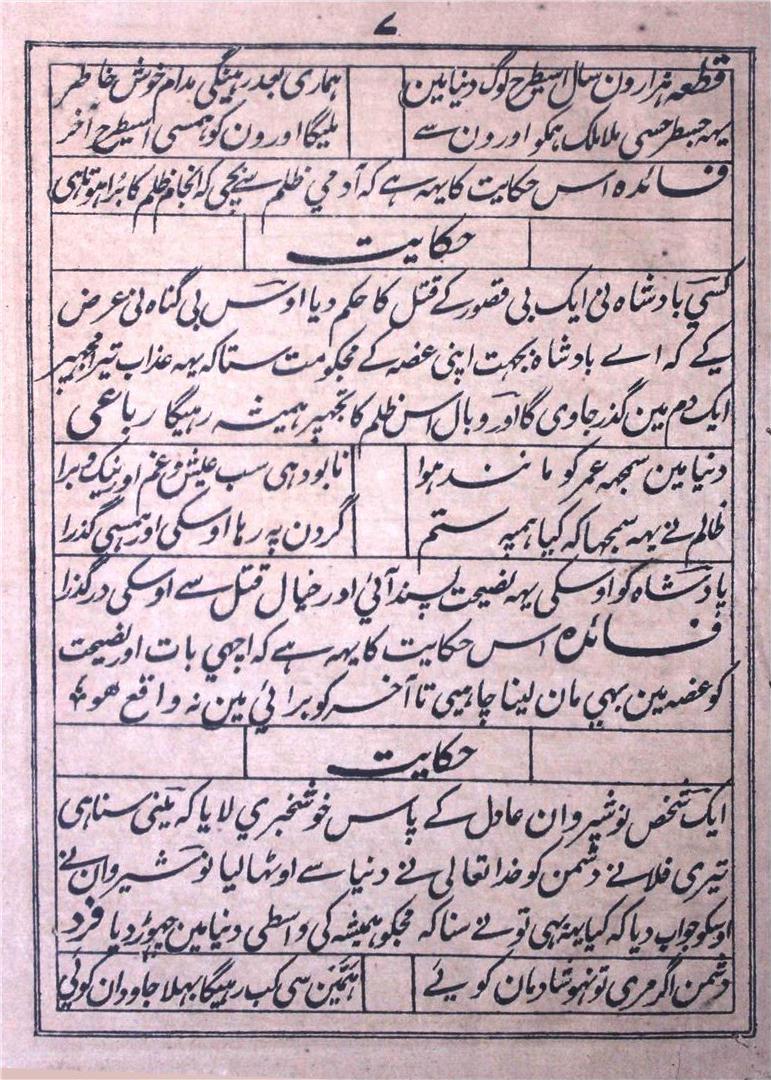 ۷
قطعہ ہزارون سال اسیطرح لوگ دنیا مین ہماری بعد رہینگی مدام خوش خاطر
یہہ جسطرحسی ملا ملک ہمکو اورون سے ملیگا اورون کو ہمسی اسیطرح آخر
فائدہ اس حکایت کا یہہ ہے کہ آدمي ظلم سے بچی کہ انجام ظلم کا برا ہوتا ہی
حکایت
کسي بادشاہ نی ایک بی قصور کے قتل کا حکم دیا اوس بی گناہ نی عرض
کے کہ اے بادشاہ بجہت اپنی غصہ کے محکومت ستا کہ یہہ عذاب تیرا مجہپر
ایک دم مین گذر جاوی گا اور وبال اس ظلم کا تجہپر ہمیشہ رہیگا رباعی
دنیا مین سمجہہ عمر کو مانند ہوا نابود ہی سب عیش و غم اور نیک و برا
ظالم نے یہہ سمجہا کہ کیا ہمپہ ستم گردن پہ رہا اوسکی اور ہمسی گذرا
پادشاہ کو اوسکی یہہ نصیحت پسند آئي اور خیال قتل سے اوسکی درگذرا
فائدہ اس حکایت کا یہہ ہے کہ اچہي بات اور نصیحت
کو غصہ مین بہي مان لینا چاہیی تا آخر کو برائي مین نہ واقع ھو
حکایت
ایک شخص نوشیروان عادل کے پاس خوشخبري لایا کہ مینی سنا ہی
تیری فلانے دشمن کو خدا تعالی نے دنیا سے اوٹہا لیا نوشیروان نے
اوسکو جواب دیا کہ کیا یہہ بہی تو نے سنا کہ مجکو ہمیشہ کی واسطی دنیا مین چہوڑ دیا فرد
دشمن اگر مری تو نہو شادمان کوئے ہمین سی کب رہیگا بہلا جاودان کوئي